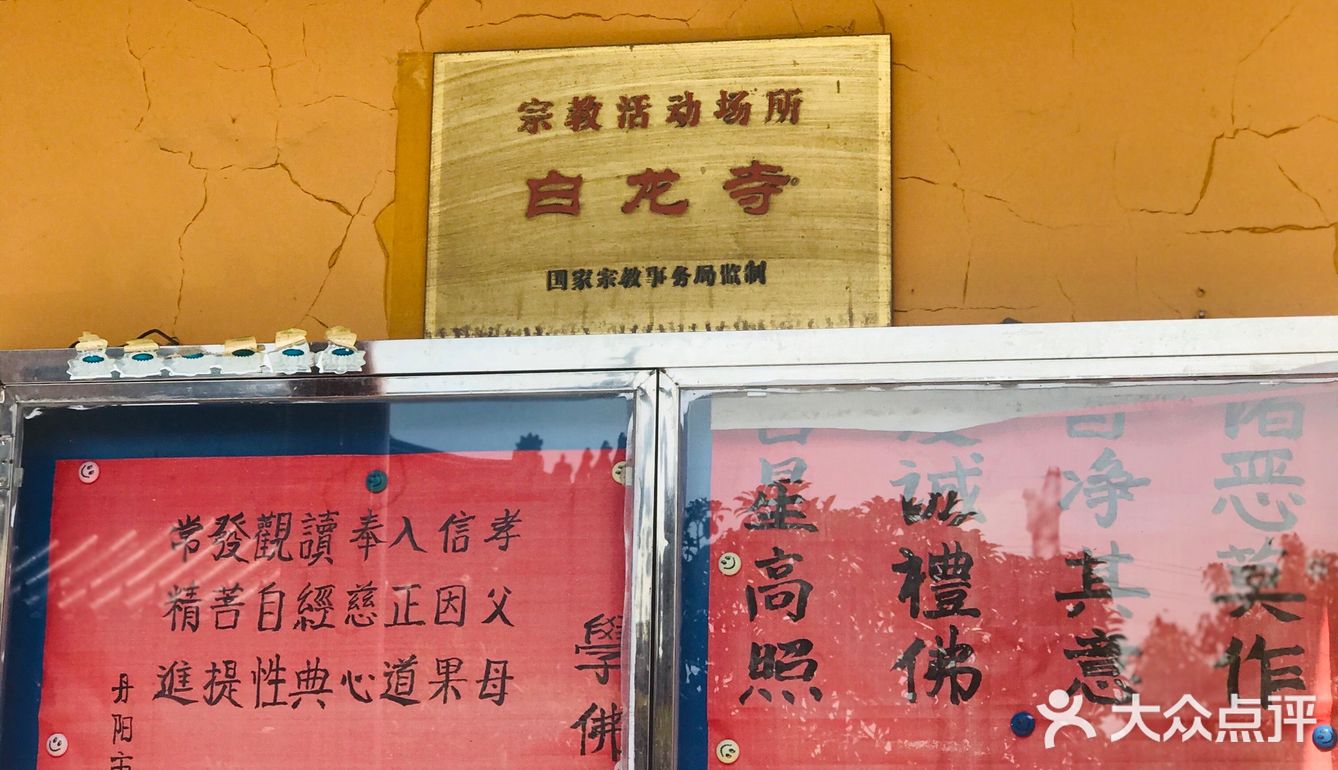 宗教活动场所
白龙寺
国家宗教事务局监制
學佛
孝父母
信因果
入正道
奉慈心
讀經典
觀自性
發菩提
常精進
丹阳市
恶莫作
自净其意
誠禮佛
星高照
大众点评